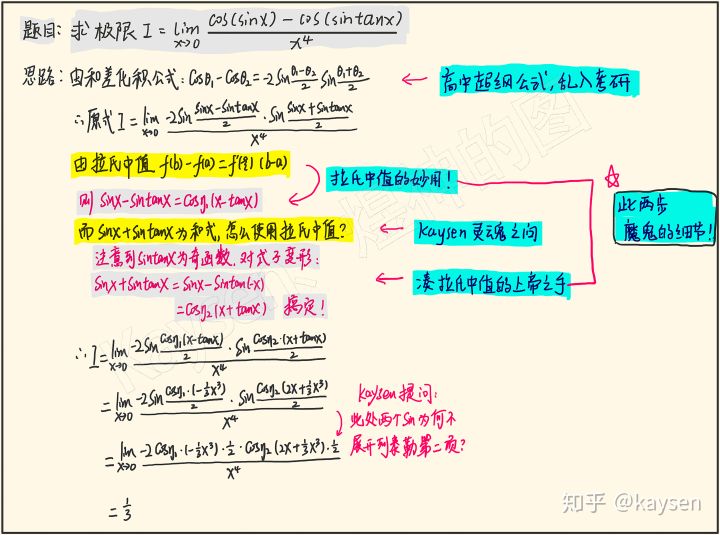 题目: 求极限 I = lim x→0 cos(sinx) - cos(sintanx) / x⁴
思路: 由和差化积公式: cosθ₁ - cosθ₂ = -2sin θ₁-θ₂/2 sin θ₁+θ₂/2
高中超纲公式, 乱入考研
∴原式 I = lim x→0 -2sin sinx-sintanx/2 · sin sinx+sintanx/2 / x⁴
由拉氏中值 f(b)-f(a)=f'(ξ)(b-a)
拉氏中值的妙用!
则 sinx-sintanx = cosη₁(x-tanx)
而sinx+sintanx为和式, 怎么使用拉氏中值?
Kaysen灵魂之问
此两步
魔鬼的细节!
注意到sintanx为奇函数, 对式子变形:
sinx+sintanx = sinx-sintan(-x)
凑拉氏中值的上帝之手
=cosη₂(x+tanx) 搞定!
∴ I = lim x→0 -2sin cosη₁(x-tanx)/2 · sin cosη₂·(x+tanx)/2 / x⁴
= lim x→0 -2sin cosη₁·(-⅓x³)/2 · sin cosη₂(2x+⅓x³)/2 / x⁴
Kaysen提问:
此处两个sin为何不
展开到泰勒第二项?
= lim x→0 -2cosη₁·(-⅓x³)·½ · cosη₂(2x+⅓x³)·½ / x⁴
= ⅓
知乎 @kaysen